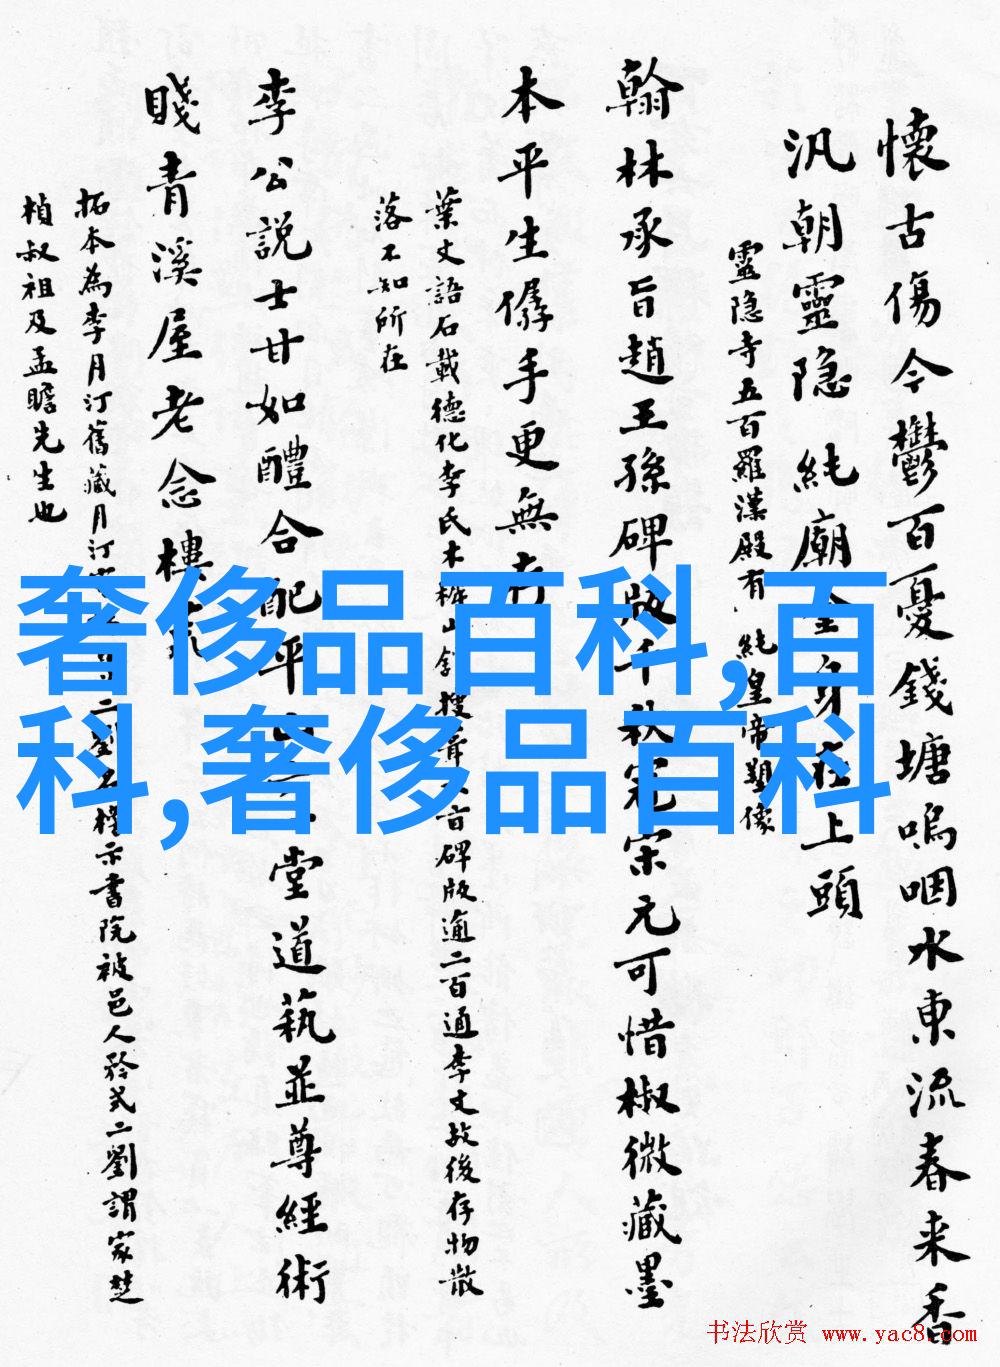 懷古傷今鬱百憂錢塘嗚咽水東流春来香
汎朝靈隐純廟金身在上頭
靈隐寺五百羅漢殿有純皇帝塑像
翰林承旨趙王孫碑版千秋冠宋元可惜椒微藏墨
本平生手更無存
葉文語石載德化李氏木山搜碑版逾二百通李文故後存物散
落不知所在
李公説士甘如醴合配平堂道藝並尊經術
賤青溪屋老念樓
拓本為李月汀舊藏月汀二劉示書院被邑人矜式二劉謂家楚
楨叔祖及孟瞻先生也
奢侈品百科,百
科,奢侈品百科
书法欣赏 www.yac8.com